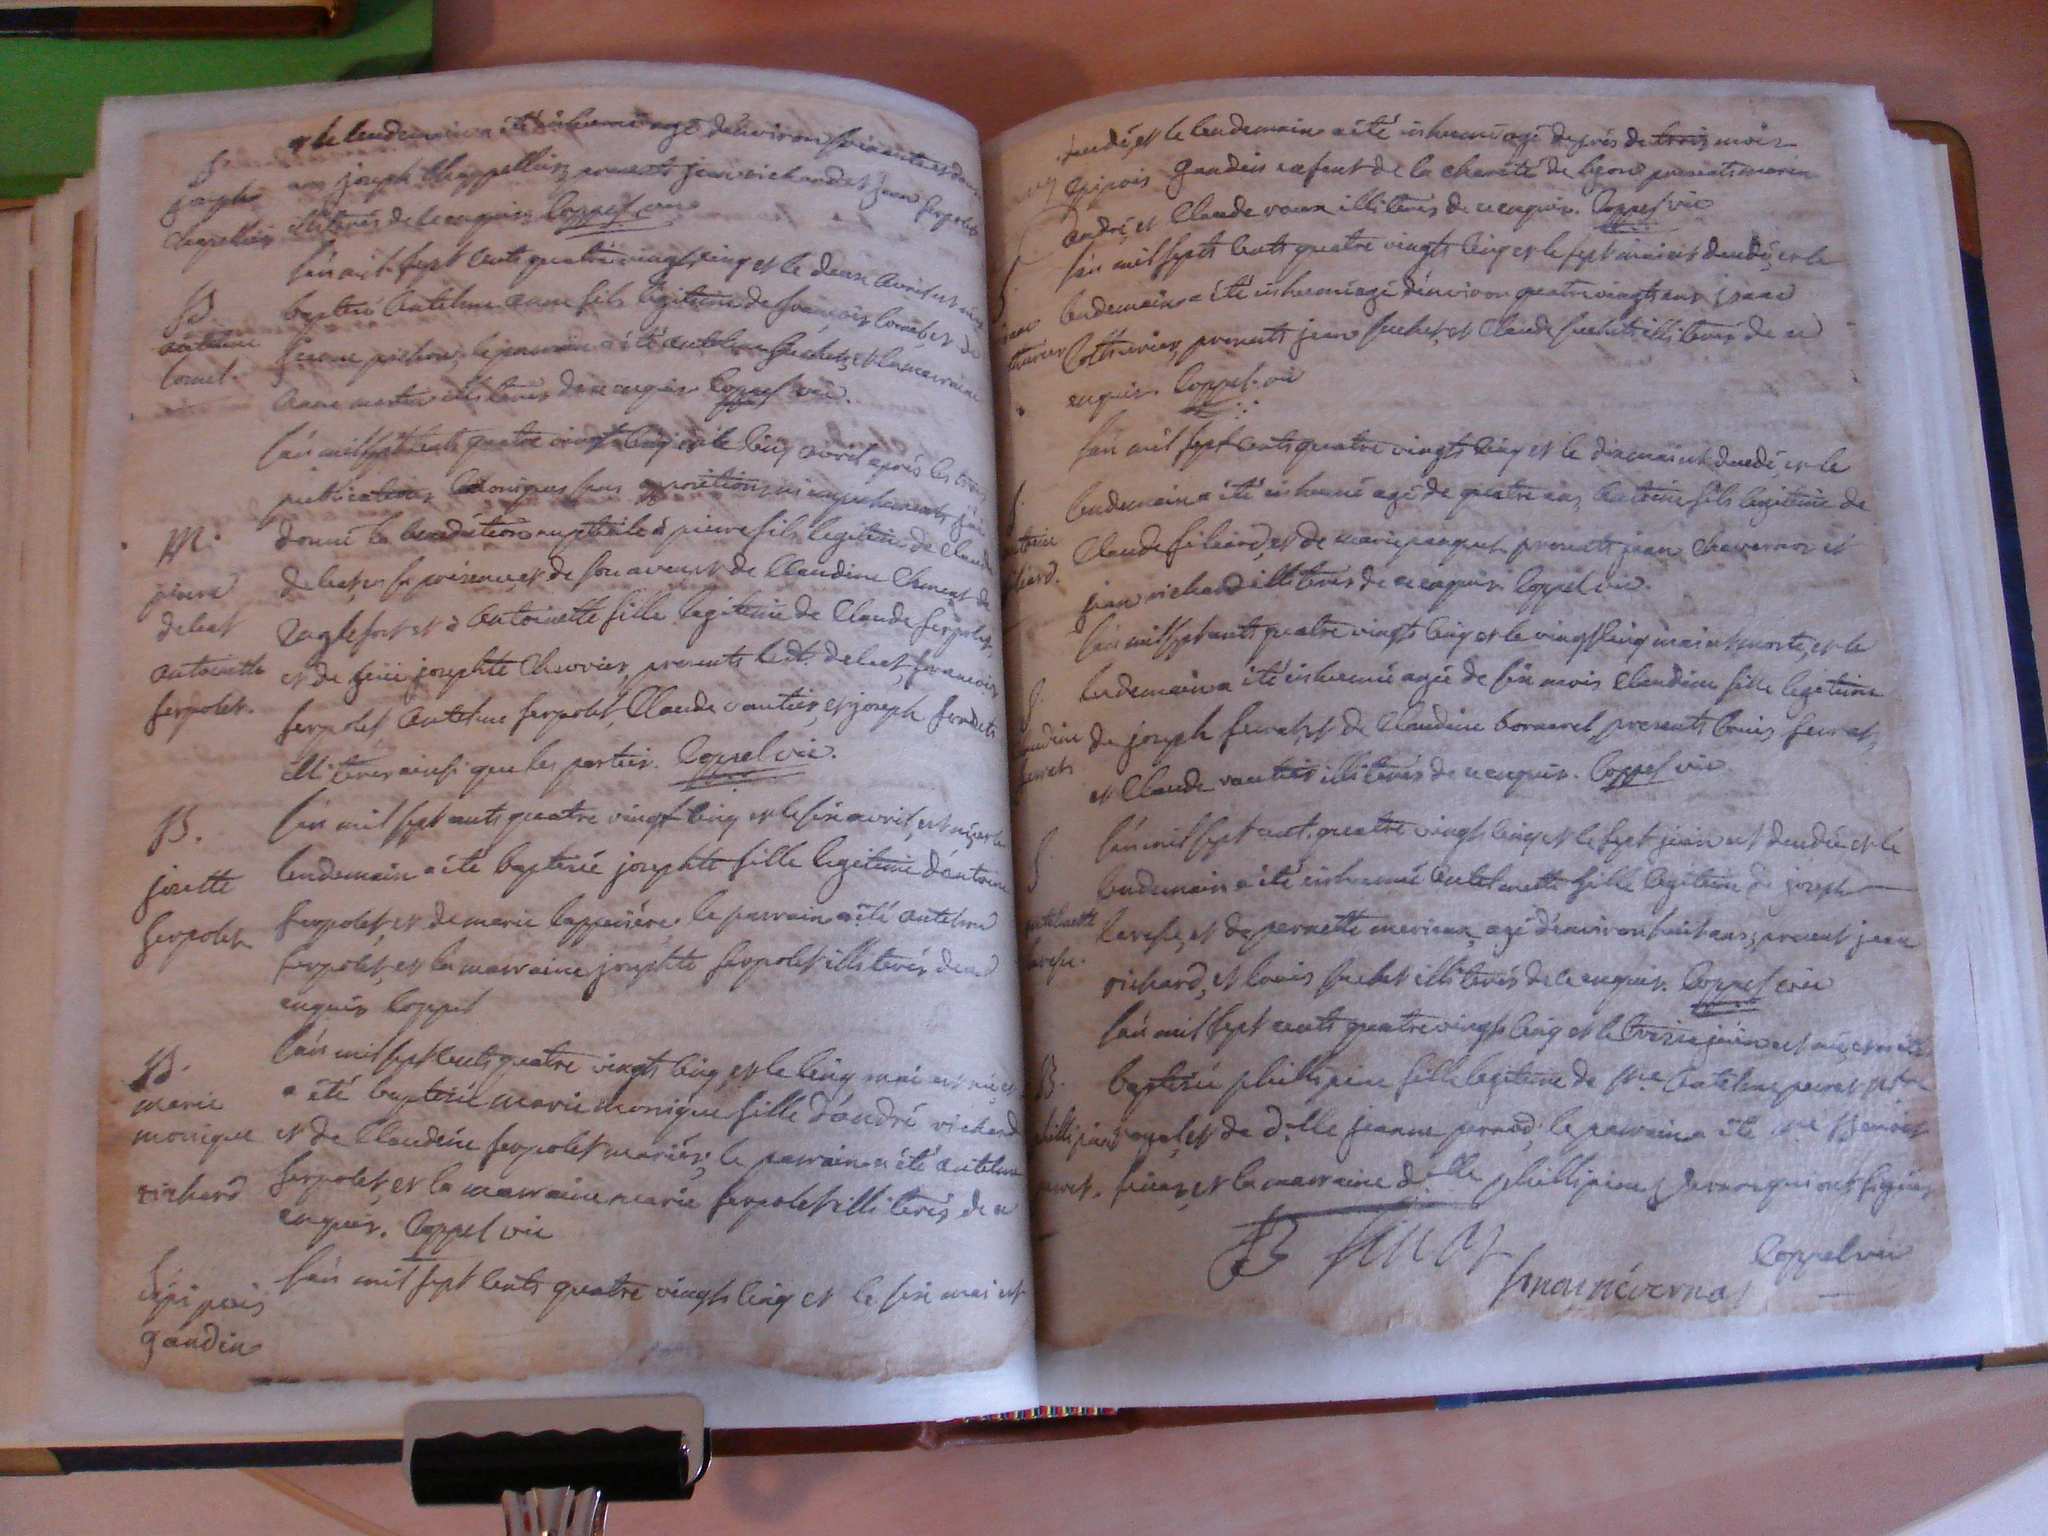 et le lendemain a été inhumé agé d'environ soixante et douze
S.
joseph
Chapellier
ans joseph Chappellier, presents jean richard et jean serpolet
illiterés de ce enquis. Coppel vic
l'an mil sept cents quatre vingt cinq et le deux avril est né
B
antelme
Comet.
baptisé Antelme anne fils légitime de françois Comet et de
jeanne pichon, le parrain a été antelme suchet, et la marraine
anne illiterés de ce enquis. Coppel vic.
l'an mil sept cents quatre vingt cinq et le cinq avril après les trois
publications Canoniques sans opposition, ni empechement, j'ai
M.
pierre
deleat
antoinette
serpolet.
donné la benediction nuptiale à pierre fils legitime de Claude
deleat, en sa présence et de son aveu et de Claudine Clement de
anglefort et à antoinette fille legitime de Claude serpolet,
et de feüe josephte Chevrier, presents led.t deleat, françois
serpolet antelme serpolet, Claude vautier, et joseph
illiteres ainsi que les parties. Coppel vic.
B.
josette
serpolet
l'an mil sept cents quatre vingt cinq et le six avril, est née et le
lendemain a été baptisée josephte fille legitime d'antoine
serpolet, et de marie lapperière. le parrain a été antelme
serpolet, et la marraine josephte serpolet illiterés de ce
enquis Coppel
B.
marie
monique
richard
l'an mil sept cents quatre vingts cinq et le cinq mai est née et
a été baptisée marie monique fille d'andré richard
et de Claudine serpolet mariés; le parrain a été antelme
serpolet, et la marraine marie serpolet illiterés de ce
enquis. Coppel vic
S
épipois
gandin
l'an mil sept cents quatre vingts cinq et le six mai est
decedé, et le lendemain a été inhumé agé de près de trois mois
epipois gandin enfant de la charité de lyon presents
andré et Claude vaux illiterés de ce enquis. Coppel vic
l'an mil septs cents quatre vingts cinq et le sept mai est decedé, et le
lendemain a été inhumé agé d'environ quatre vingt ans
presents jean suchet, et Claude suchet illiterés de ce
enquis. Coppel vic
l'an mil sept cents quatre vingts cinq et le dix mai est decedé, et le
lendemain a été inhumé agé de quatre ans, antoine fils legitime de
Claude filiard, et de marie presents jean Chavernoz et
jean richard illiterés de ce enquis. Coppel vic.
l'an mil sept cents quatre vingts cinq et le vingt cinq mai est morte, et le
lendemain a été inhumée agée de six mois Claudine fille legitime
de joseph ferrat, et de Claudine bornarel, presents louis ferrat,
et Claude vautier illiterés de ce enquis. Coppel vic
l'an mil sept cent quatre vingt cinq et le sept juin est decedée et le
lendemain a été inhumée antelmette fille legitime de joseph
et de pernette merieux, agé d'environ huit ans, present jean
richard, et louis suchet illiterés de ce enquis. Coppel vic
l'an mil sept cents quatre vingts cinq et le treize juin est née, et a été
B.
baptisée phillipine fille legitime de s.re Antelme
et de d.lle jeanne le parrain a été
et la marraine d.lle phillipine qui ont signés
Coppel vic